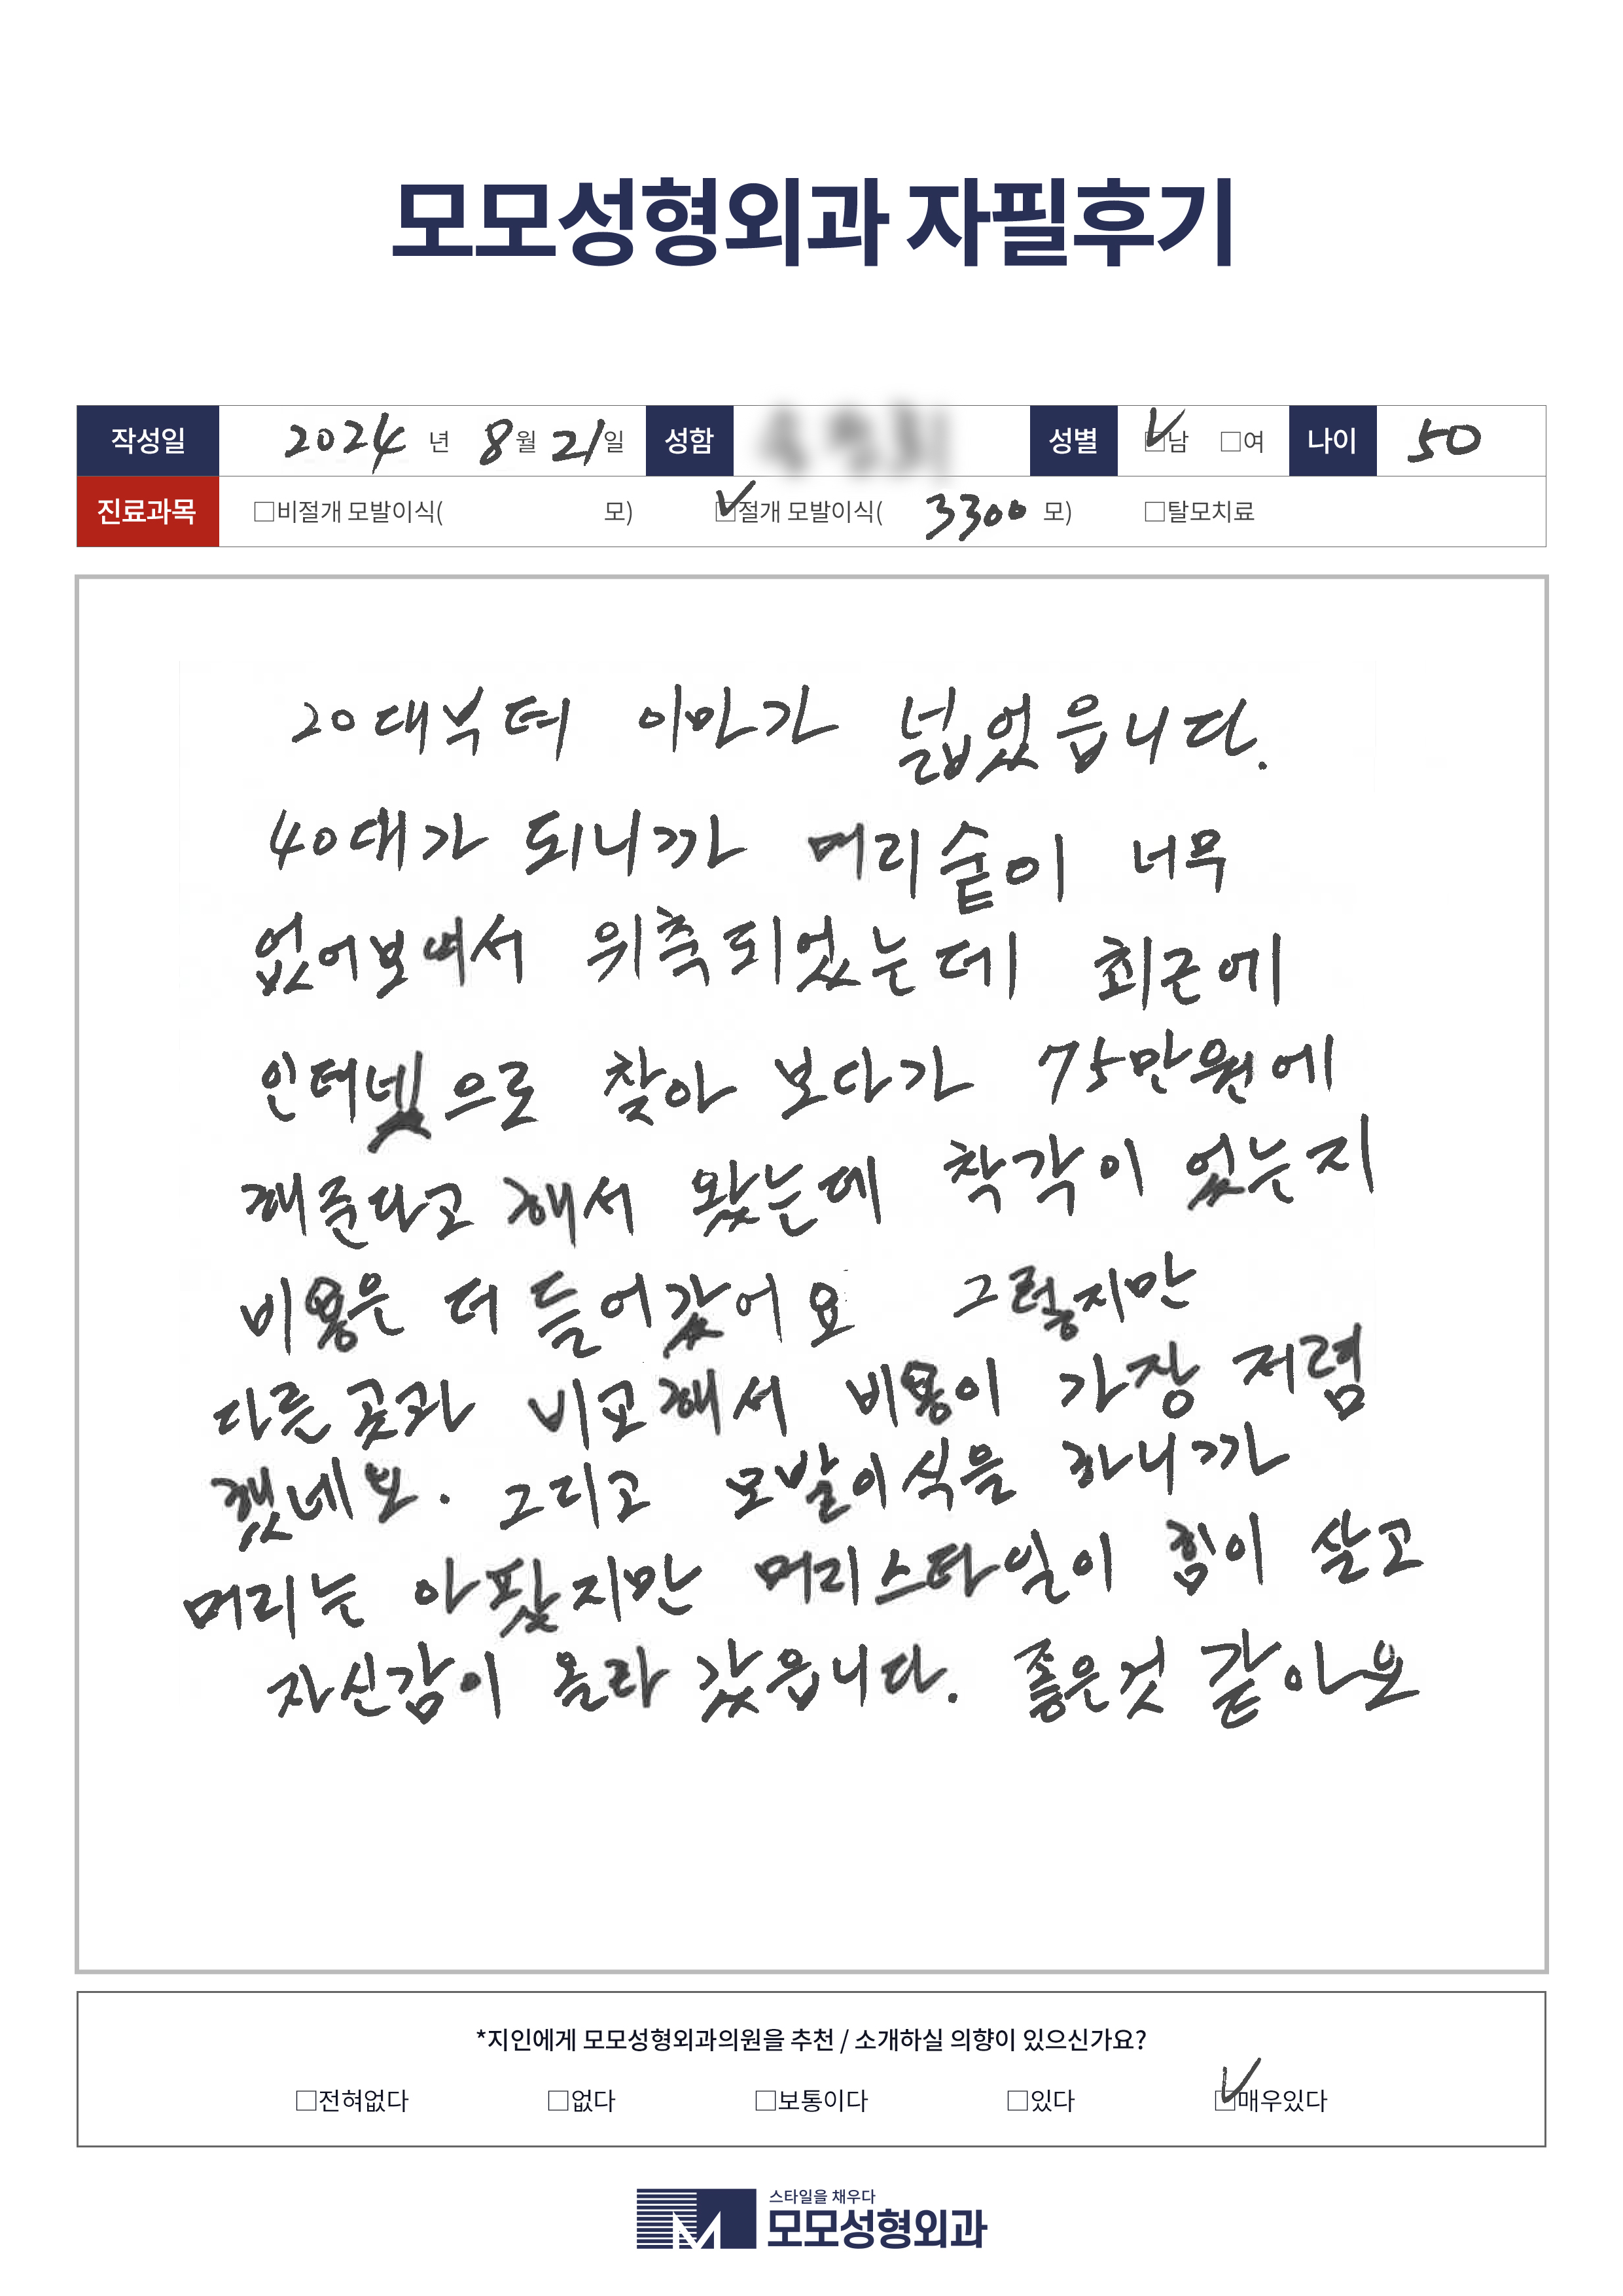 모모성형외과 자필후기
작성일 2024 년 8월 21일 성함 성별 ☑남 □여 나이 50
진료과목 □비절개 모발이식( 모) ☑절개 모발이식( 3300 모) □탈모치료
20대부터 이마가 넓었읍니다.
40대가 되니까 머리숱이 너무
없어보여서 위축되었는데 최근에
인터넷으로 찾아 보다가 75만원에
해준다고 해서 왔는데 착각이 었는지
비용은 더 들어갔어요 그렇지만
다른곳과 비교해서 비용이 가장 저렴
했네요. 그리고 모발이식을 하니까
머리는 아팠지만 머리스타일이 힘이 살고
자신감이 올라 갔읍니다. 좋은것 같아요
*지인에게 모모성형외과의원을 추천 / 소개하실 의향이 있으신가요?
□전혀없다 □없다 □보통이다 □있다 ☑매우있다
스타일을 채우다
모모성형외과